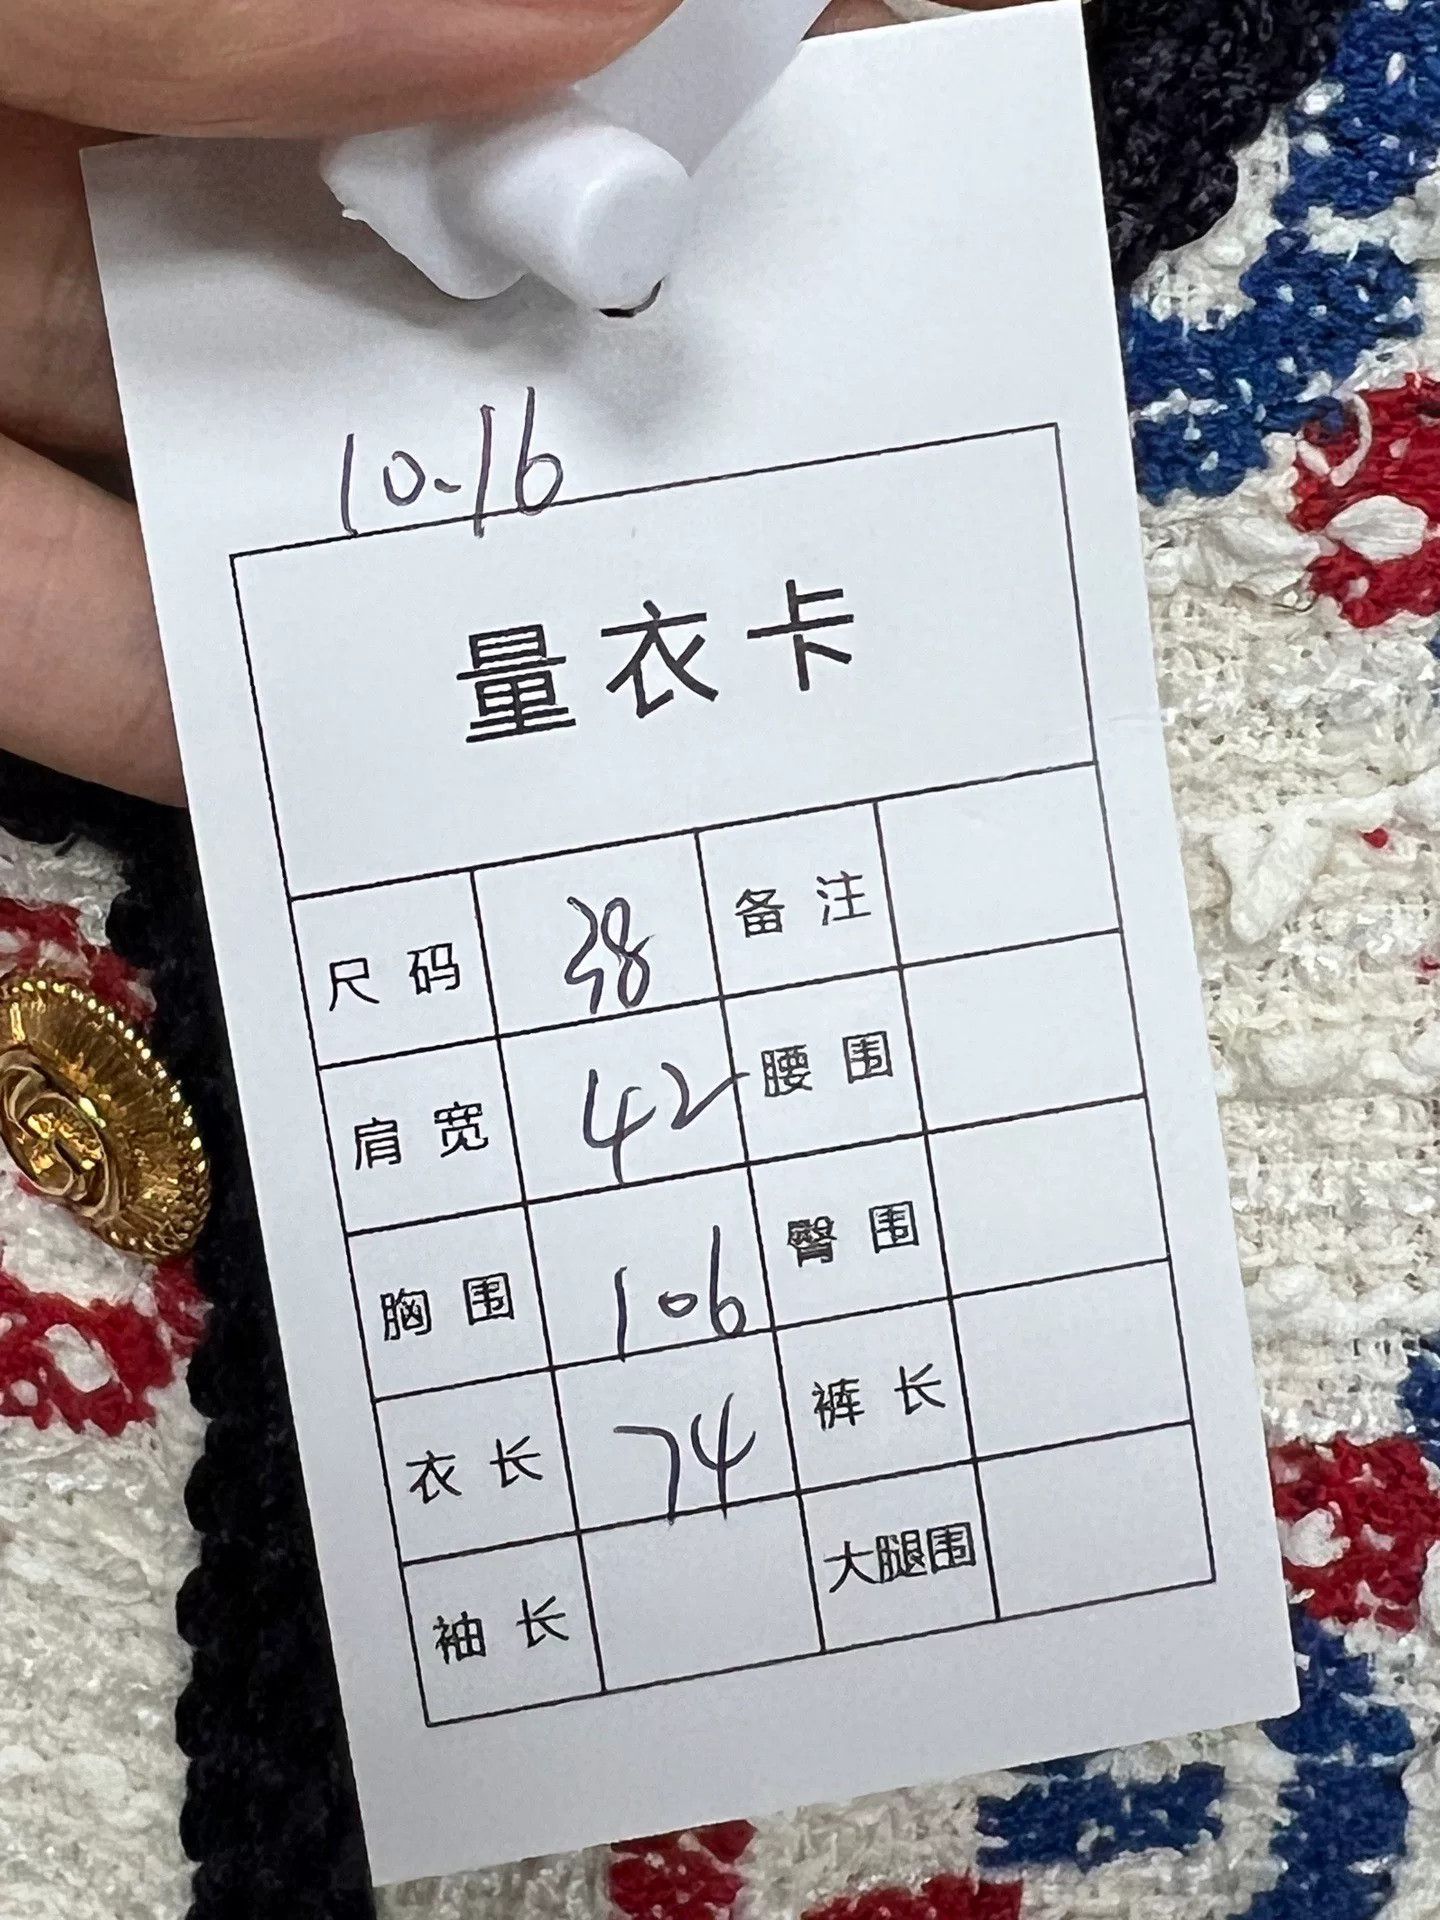 10.16
量衣卡
尺码 38 备注
肩宽 42 腰围
胸围 106 臀围
衣长 74 裤长
袖长 大腿围